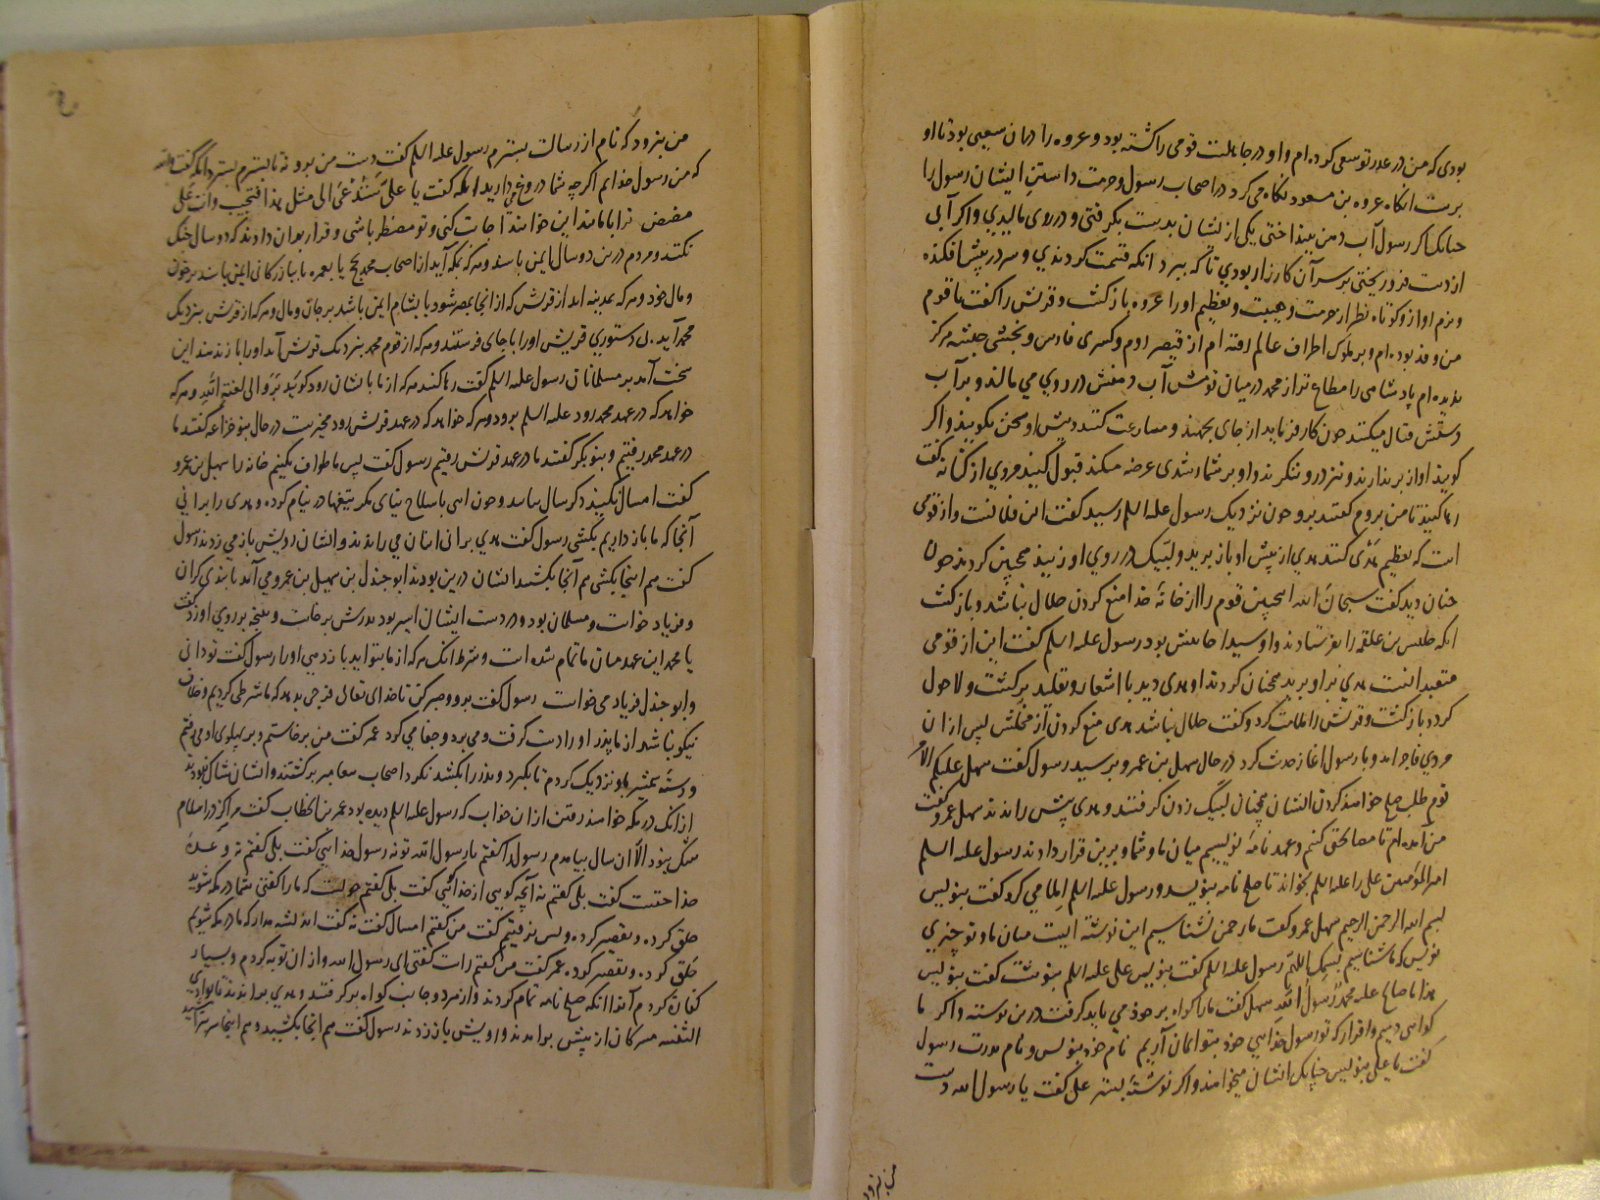 بودی که من در عدر تو سعی کرده ام و او در جاهلیت قومی را کشته بود و عروه را در آن سعیی بود تا او
برست آنگاه عروه بن مسعود نگاه می کرد در اصحاب رسول و حرمت داشتن ایشان رسول را
چنانک اگر رسول آب دهن بینداختی یکی از ایشان بدست بگرفتی و در روی مالیدی و اگر آبی
از دست فرو ریختی بر سر آن کارزار بودی تا که ببرد آنکه قسمت کردندی و سر در پیش افکنده
و نرم آواز و کوتاه نظر از حرمت و هیبت و تعظیم او را عروه بازگشت و قریش را گفت یا قوم
من وفد بوده ام و بر ملوک اطراف عالم رفته ام از قیصر روم و کسری فارس و نجشی حبشه هرگز
ندیده ام پادشاهی را مطاع تر از محمد در میان قومش آب دهنش در روی می مالند و بر آب
دستش قتال میکنند چون کار فرماید از جای بجهند و مسارعت کنند و پیش او سخن نگویند و اگر
گویند آواز برندارند و تیز در و ننگرند و او بر شما رشدی عرضه میکند قبول کنید مردی از کنانه گفت
رها کنید تا من بروم گفتند برو چون نزدیک رسول علیه السلم رسید گفت این فلانست و از قومی
است که تعظیم هدی کنند هدی از پیش او باز برید و لبیک در روی او زنید همچنین کردند چون
چنان دید گفت سبحان الله همچنین قوم را از خانه خدا منع کردن حلال نباشد و بازگشت
آنکه حلیس بن علقمه را بفرستادند و او سید احابیش بود رسول علیه السلم گفت این از قومی
متعبد انست هدی برا و برید همچنان کردند او هدی دید با اشعار و تقلید برگشت و لاحول
کرد و بازگشت و قریش را ملامت کرد و گفت حلال نباشد هدی منع کردن از محلش پس از آن
مردی فاجر آمد و با رسول آغاز حدیث کرد در حال سهل بن عمرو برسید رسول گفت سهل علیکم الامر
قوم طلب صلح خواهند کردن ایشان همچنان لبیک زدن گرفتند و هدی پیش راندند سهل عمرو گفت
من آمده ام تا مصالحتی کنم و عهد نامه نویسیم میان ما و شما و برین قرار دادند رسول علیه السلم
امیر المؤمنین علی را علیه السلم بخواند تا صلح نامه بنویسد و رسول علیه السلم املا می کرد گفت بنویس
بسم الله الرحمن الرحیم سهل عمرو گفت ما رحمن نشناسیم این نوشته ایست میان ما و تو چیزی
نویس که ما شناسیم بسمک اللهم رسول علیه السلم گفت بنویس علی علیه السلم بنوشت گفت بنویس
هذا ما صالح علیه محمد رسول الله سهل گفت ما را گواه بر خود می باید گرفت درین نوشته و اگر ما
گواهی دهیم و اقرار که تو رسول خدایی خود بتو ایمان آریم نام خود بنویس و نام پدرت رسول
گفت یا علی بنویس چنانک ایشان میخواهند و اگر نوشته بستر علی گفت یا رسول الله دست
من نرود
من بنرود که نام از رسالت بسترم رسول علیه السلم گفت دست من برو نه تا بسترم بسترد آنگه گفت والله
که من رسول خدایم اگر چه شما دروغ می دارید آنکه گفت یا علی ستدعی الی مثل هذا فتجیب وانت علی
مضض ترا با مانند این خوانند اجابت کنی و تو مضطر باشی و قرار بران دادند که دو سال جنگ
نکنند و مردم درین دو سال ایمن باشند و هر که بمکه آید از اصحاب محمد بحج یا بعمره یا ببازرگانی ایمن باشد بر خون
و مال خود و هر که بمدینه آید از قریش که از آنجا بمصر شود یا بشام ایمن باشد بر جان و مال و هر که از قریش بنزدیک
محمد آید بی دستوری قریش او را با جای فرستند و هر که از قوم محمد بنزدیک قریش آید او را باز ندهند این
سخت آمد بر مسلمانان رسول علیه السلم گفت رها کنید هر که از ما با ایشان رود گویید مر و الی لعنة الله و هر که
خواهد که در عهد محمد رود علیه السلم برود و هر که خواهد که در عهد قریش رود مخیرست در حال بنو خزاعه گفتند ما
در عهد محمد رفتیم و بنو بکر گفتند ما در عهد قریش رفتیم رسول گفت پس ما طواف بکنیم خانه را سهیل بن عمرو
گفت امسال نکنید دگر سال بیایید و چون آیی با سلاح نیای مگر تیغها در نیام کرده و هدی را برانی
آنجا که ما باز داریم بکشی رسول گفت هدی برانی اینان می راندند و ایشان رویش باز می زدند رسول
گفت هم اینجا بکشی هم آنجا بکشند ایشان درین بودند ابو جندل بن سهیل بن عمرو می آمد با بندی گران
و فریاد خواست و مسلمان بود و در دست ایشان اسیر بود پدرش برخاست و طپنچه بر روی او زد گفت
یا محمد این عهد میان ما تمام شده است و شرط آنک هر که از ما بتو آید باز دهی او را رسول گفت تو دانی
و ابو جندل فریاد می خواست رسول گفت برو و صبر کن تا خدای تعالی فرجی بدهد که ما شرطی کردیم و خلاف
نیکو نباشد از ما پدر او را دست گرفت و می برد و جفا می کرد عمر گفت من برخاستم و بر پهلوی او می رفتم
و دسته شمشیر باو نزدیک کردم تا بگیرد و پدر را بکشد نکرد اصحاب معا صر برگشتند و ایشان شاک نبودند
از آنک در مکه خواهند رفتن از ان خواب که رسول علیه السلم دیده بود عمر بن الخطاب گفت هرگز در اسلام
شکم نبود الا آن سال بیامدم رسول را گفتم یا رسول الله تو نه رسول خدایی گفت بلی گفتم نه وعده
خدا حقست گفت بلی گفتم نه آنچه گویی از خدا گویی گفت بلی گفتم چونست که ما را گفتی شما در مکه شوید
حلق کرده و تقصیر کرده و پس نرفتیم گفت من گفتم امسال گفت نه گفت اندیشه مدار که ما در مکه شویم
حلق کرده و تقصیر کرده عمر گفت من گفتم راست گفتی ای رسول الله و از ان توبه کردم و بسیار
کفارت کردم آنرا آنکه صلح نامه تمام کردند و از هر دو جانب گواه برگرفتند و هدی براندند تا بوادی
الثنیه مشرکان از پیش برآمدند و رویش باز زدند رسول گفت هم اینجا بکشید و هم اینجا سر بتراشید